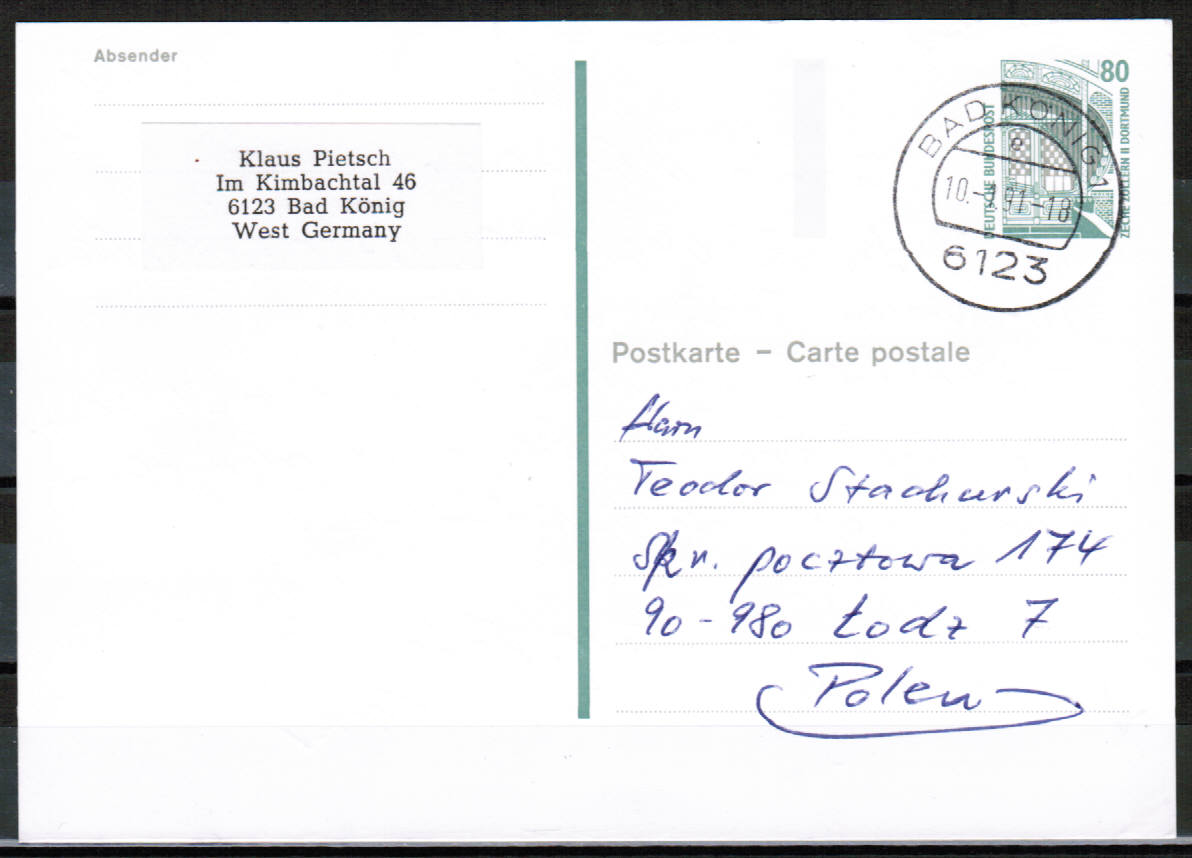 Absender
Klaus Pietsch
Im Kimbachtal 46
6123 Bad König
West Germany
80
DEUTSCHE BUNDESPOST
ZECHE ZOLLERN II DORTMUND
BAD KÖNIG 1
e
10.-4.91-18
6123
Postkarte – Carte postale
Herrn
Teodor Stachurski
Skr. pocztowa 174
90-980 Łodz 7
Polen